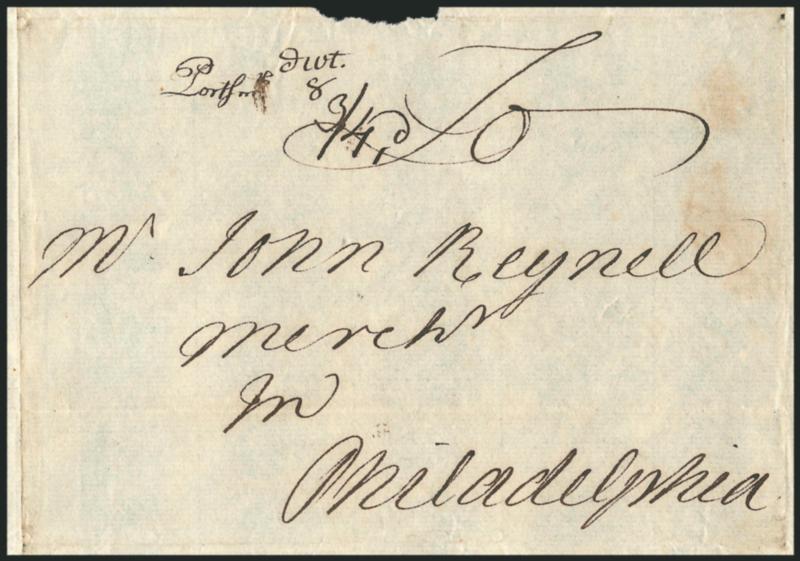 Portsmo dwt.
8
3/4d
To
Mr John Reynell
Merchr
In
Philadelphia